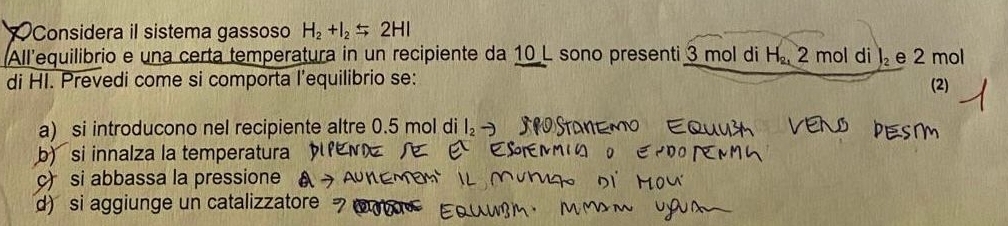 Considera il sistema gassoso H₂ +I₂ ⇆ 2HI
All'equilibrio e una certa temperatura in un recipiente da 10 L sono presenti 3 mol di H₂, 2 mol di I₂ e 2 mol
di HI. Prevedi come si comporta l'equilibrio se:
(2) 1
a) si introducono nel recipiente altre 0.5 mol di I₂ → SPOSTAMENTO EQUILIBR VERSO DESTR
b) si innalza la temperatura DIPENDE SE E' ESOTERMICA O ENDOTERMICA
c) si abbassa la pressione → AUMENTERA' IL NUMERO DI MOLI
d) si aggiunge un catalizzatore → EQUILIBR. RIMAN UGUAL